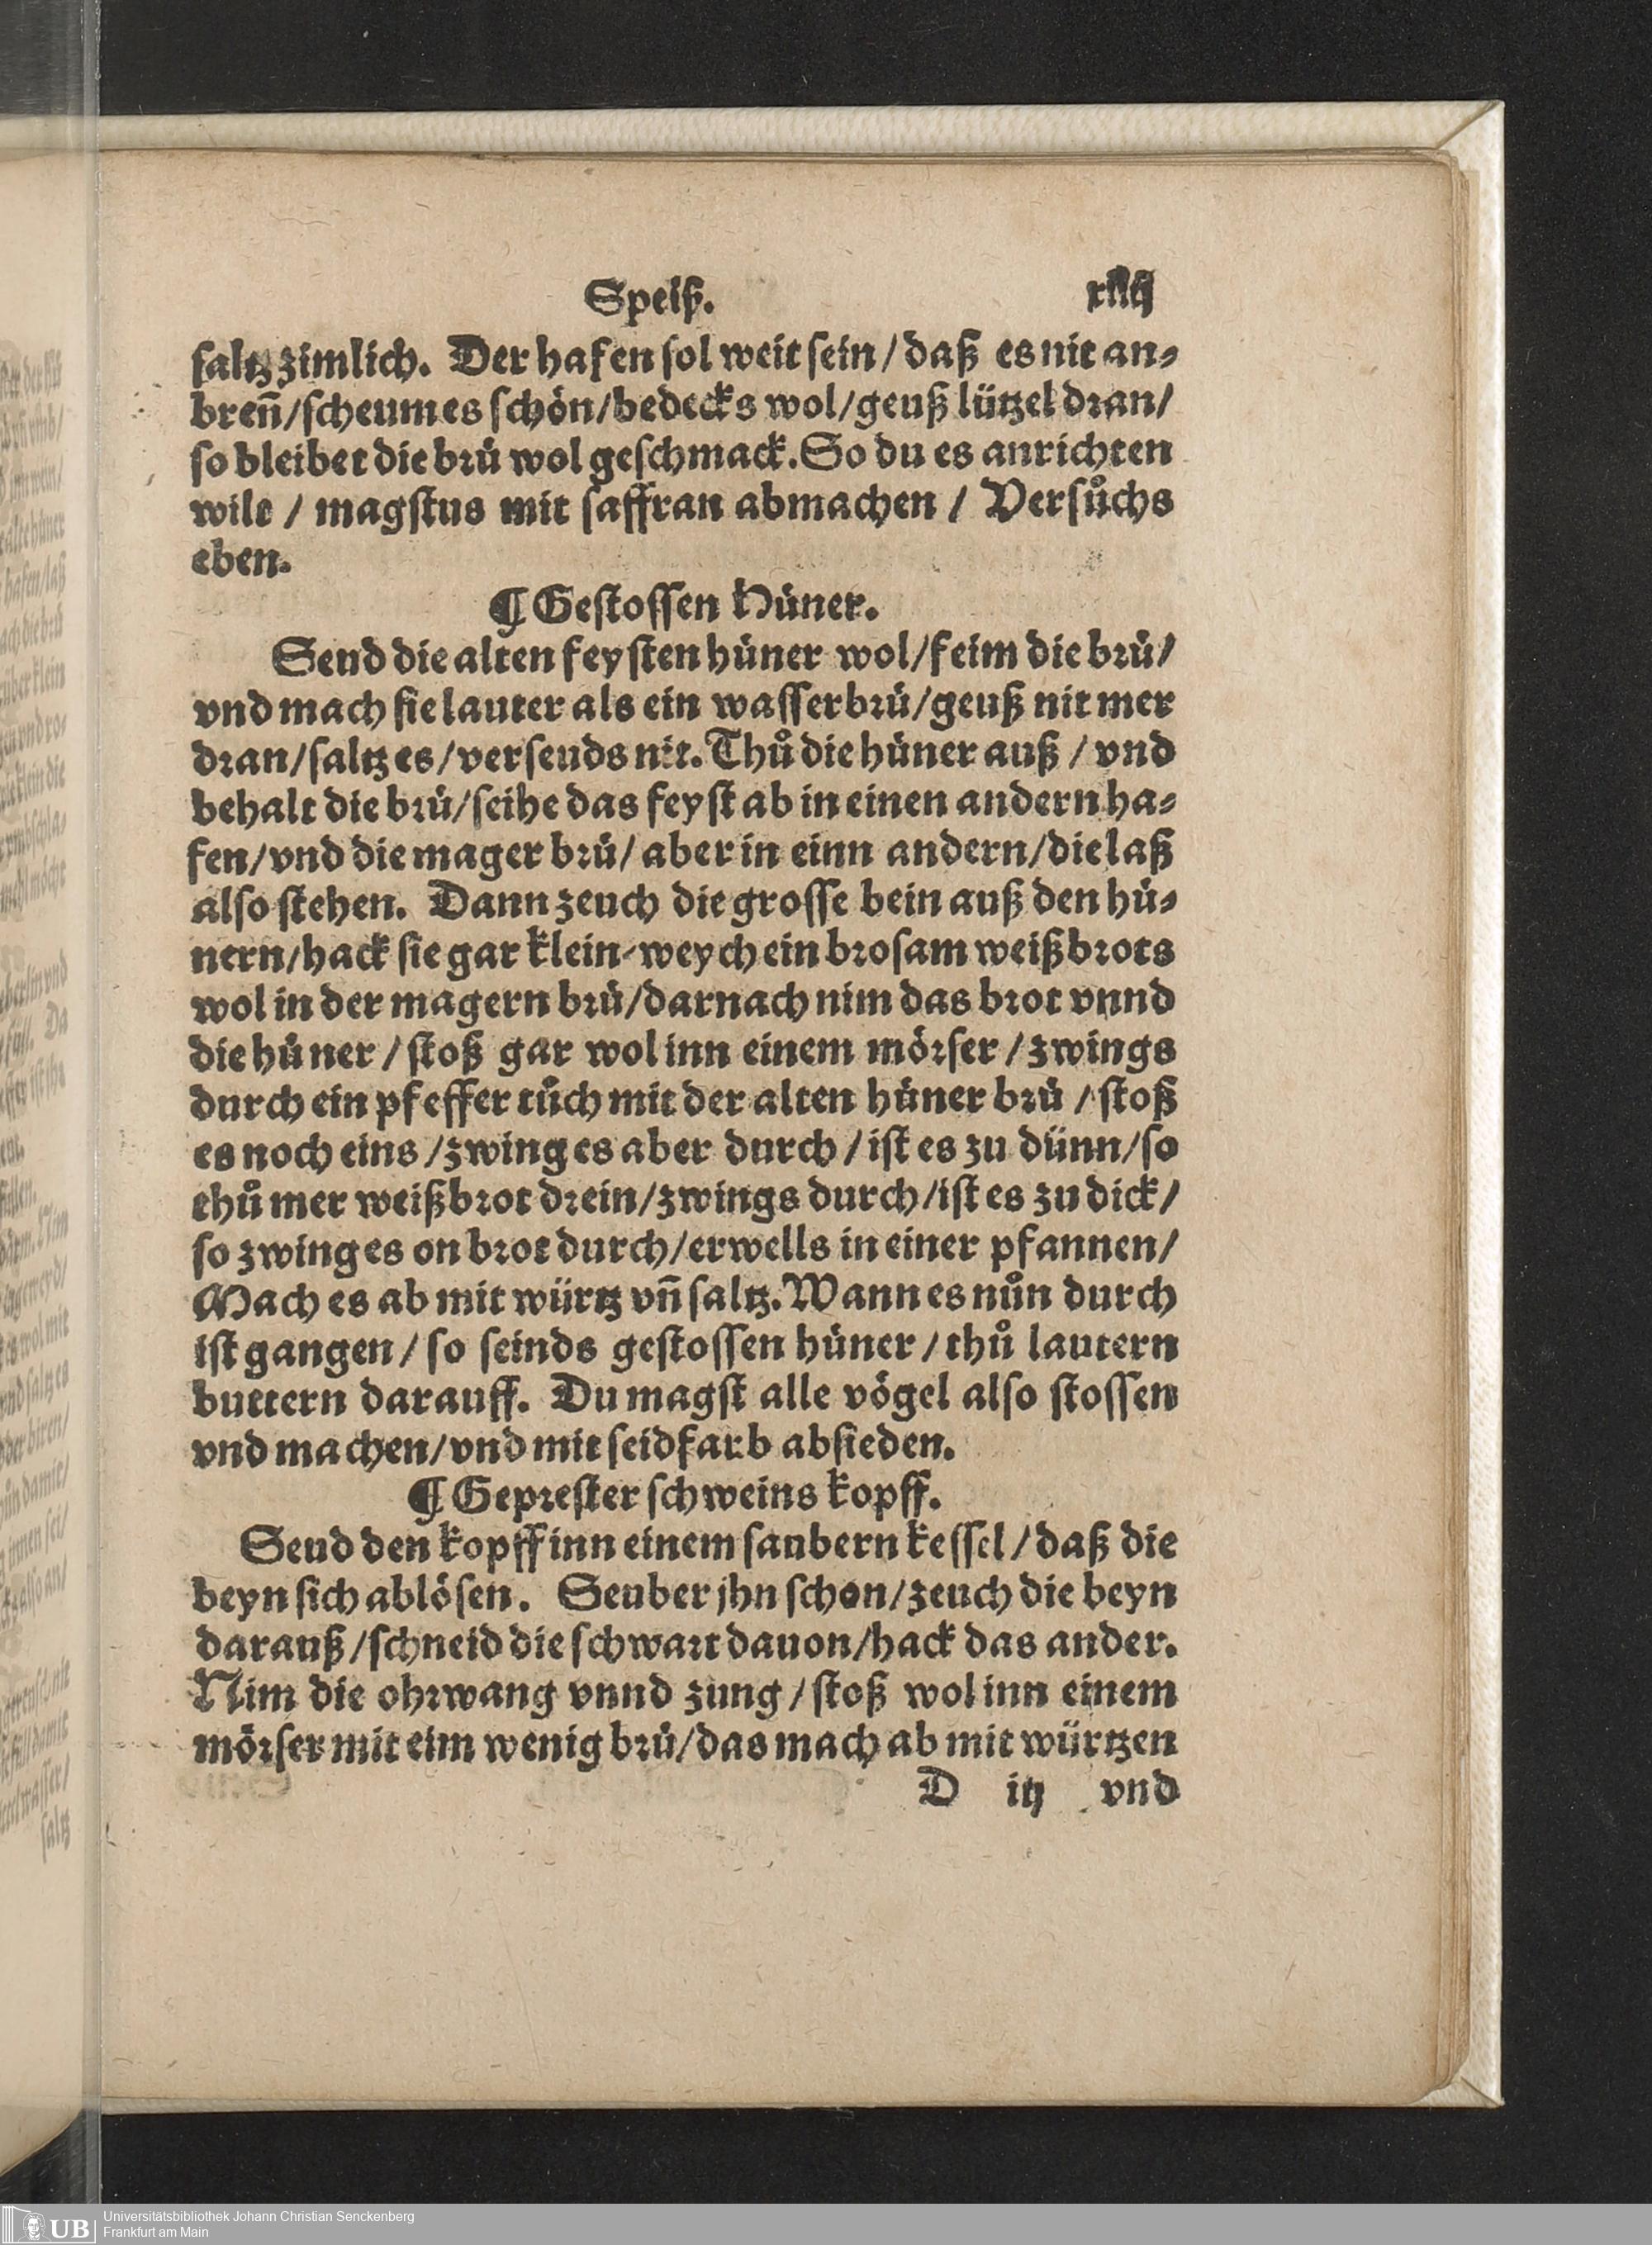 Speiß.
saltz zimlich. Der hafen sol weit sein / daß es nit an⸗
breñ / scheum es schön / bedecks wol / geuß lützel dran /
so bleibet die brů wol geschmack. So du es anrichten
wilt / magstus mit saffran abmachen / Versůchs
eben.
¶ Gestossen Hüner.
Seud die alten feysten hüner wol / feim die brü /
vnd mach sie lauter als ein wasserbrü / geuß nit mer
dran / saltz es / verseuds nit. Thů die hüner auß / vnd
behalt die brü / seihe das feyst ab in einen andern ha⸗
fen / vnd die mager brü / aber in einn andern / die laß
also stehen. Dann zeuch die grosse bein auß den hü⸗
nern / hack sie gar klein / weych ein brosam weißbrots
wol in der magern brü / darnach nim das brot vnnd
die hüner / stoß gar wol inn einem mörser / zwings
durch ein pfeffer tůch mit der alten hüner brü / stoß
es noch eins / zwing es aber durch / ist es zu dünn / so
thů mer weißbrot drein / zwings durch / ist es zu dick /
so zwing es on brot durch / erwells in einer pfannen /
Mach es ab mit würtz vñ saltz. Wann es nůn durch
ist gangen / so seinds gestossen hüner / thů lautern
buttern darauff. Du magst alle vögel also stossen
vnd machen / vnd mit seidfarb absieden.
¶ Geprester schweins kopff.
Seud den kopff inn einem saubern kessel / daß die
beyn sich ablösen. Seuber jhn schon / zeuch die beyn
darauß / schneid die schwart dauon / hack das ander.
Nim die ohrwang vnnd zung / stoß wol inn einem
mörser mit eim wenig brü / das mach ab mit würtzen
D iij vnd
UB Universitätsbibliothek Johann Christian Senckenberg
Frankfurt am Main